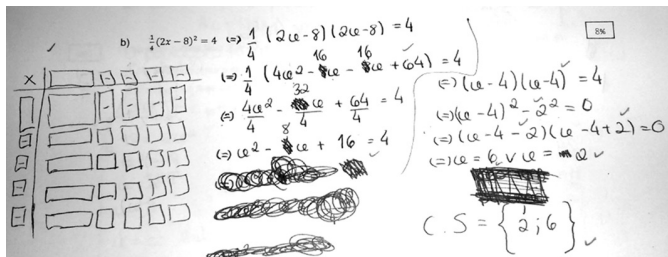 8%
b) 1/4(2x − 8)² = 4 (=) 1/4 (2x-8)(2x-8) = 4
(=) 1/4 (4x² - 16x - 16x + 64) = 4
(=) 4x²/4 - 32x/4 + 64/4 = 4
(=) x² - 8x + 16 = 4
(=) (x-4)(x-4) = 4
(=) (x-4)² - 2² = 0
(=) (x-4-2)(x-4+2) = 0
(=) x = 6 ∨ x = 2
C.S = {2; 6}
X